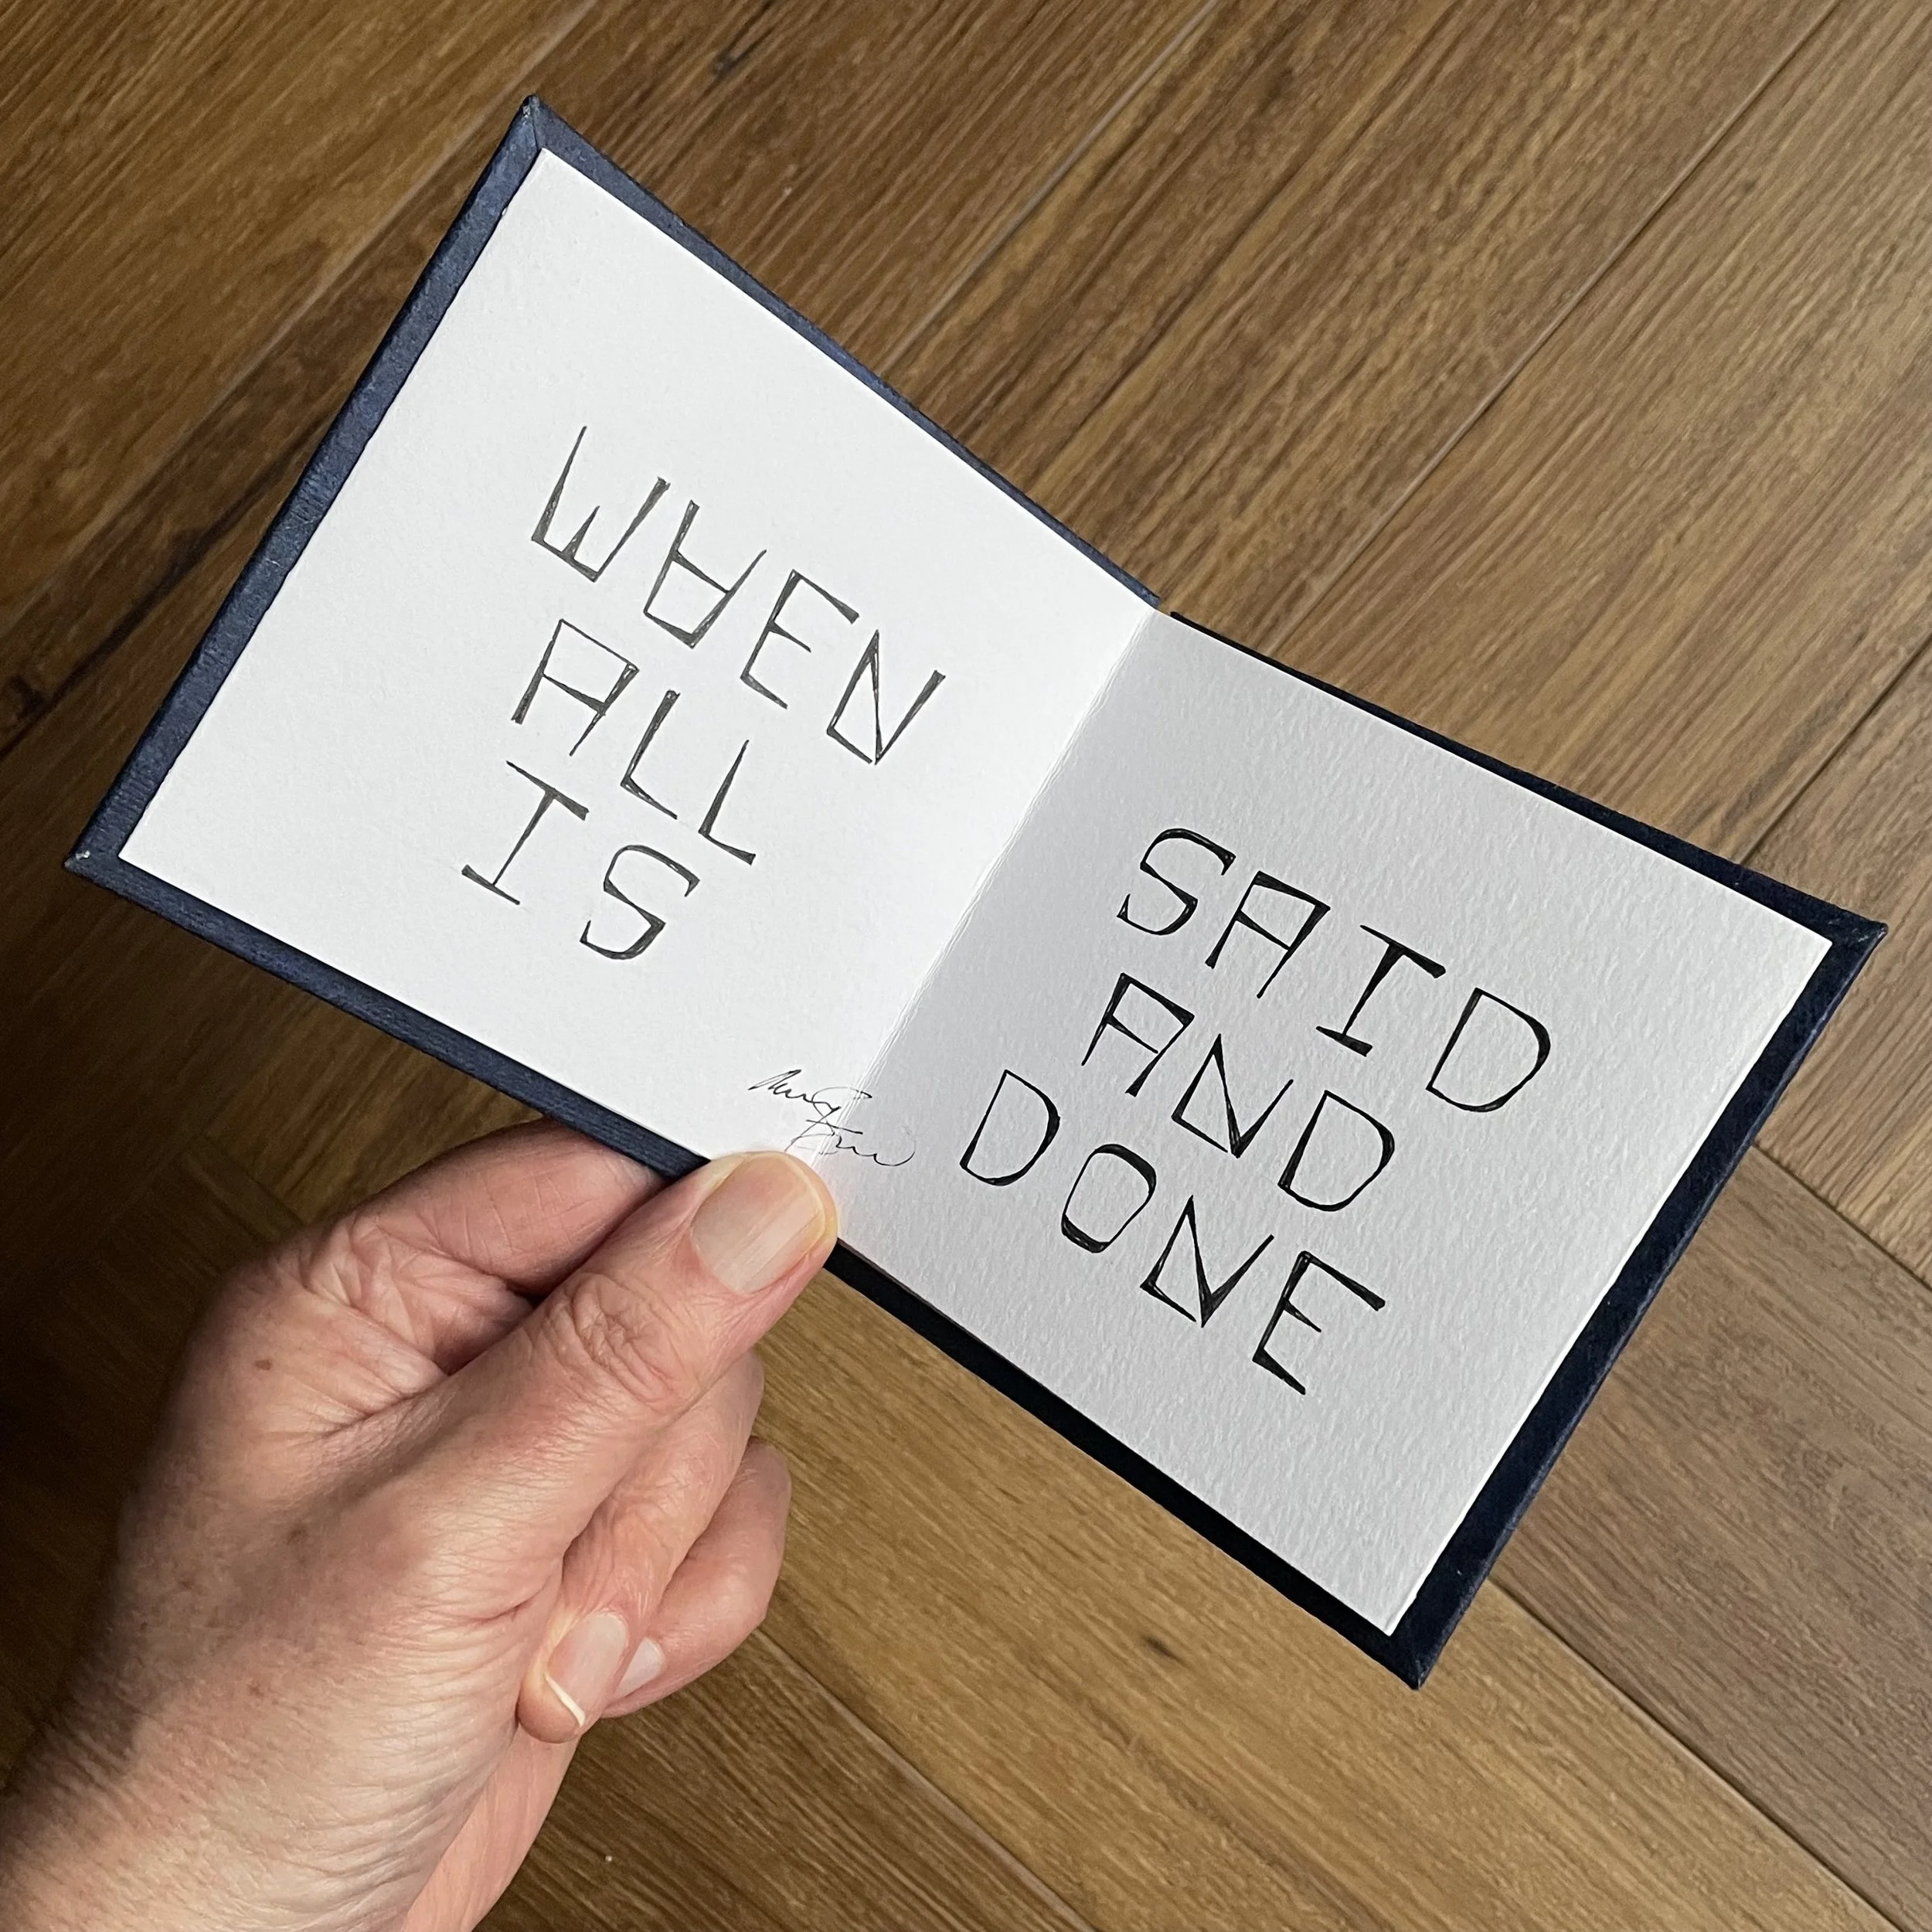 WHEN
ALL
IS
SAID
AND
DONE